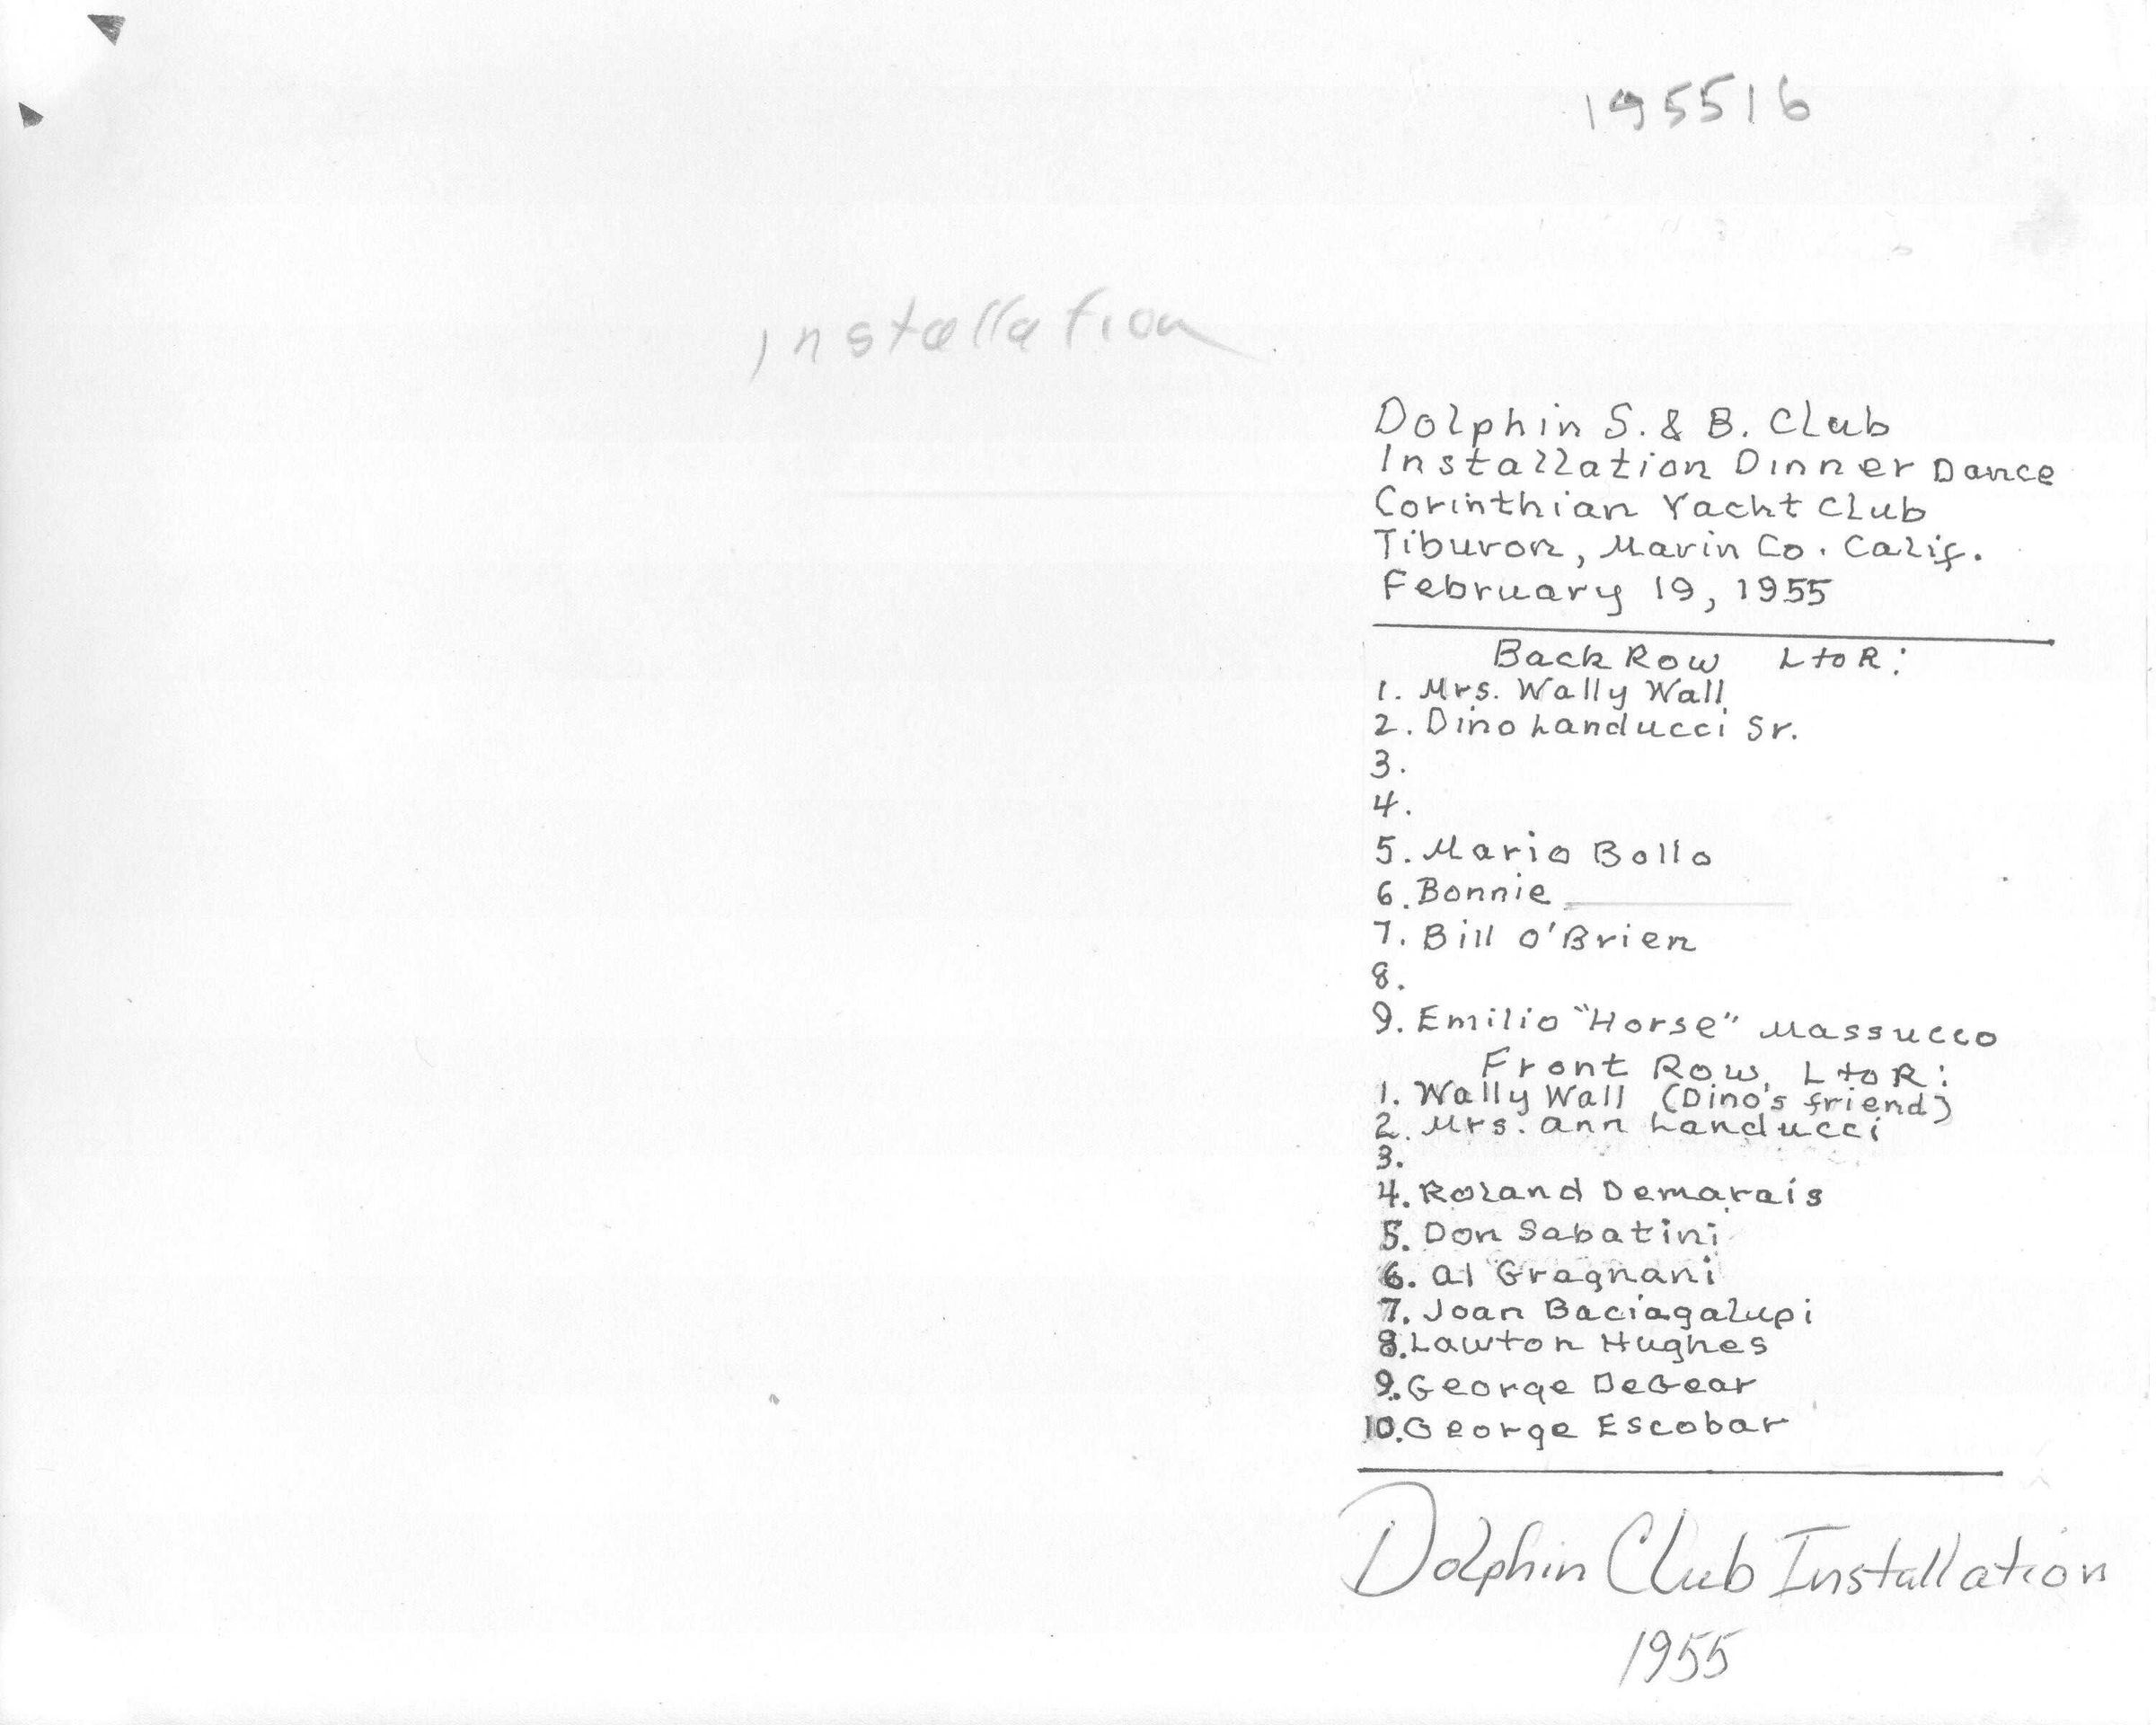 195516
Installation
Dolphin S. & B. Club
Installation Dinner Dance
Corinthian Yacht Club
Tiburon, Marin Co. Calif.
February 19, 1955
Back Row L to R:
1. Mrs. Wally Wall
2. Dino Landucci Sr.
3.
4.
5. Mario Bollo
6. Bonnie
7. Bill O'Brien
8.
9. Emilio "Horse" Massucco
Front Row L to R:
1. Wally Wall (Dino's friend)
2. Mrs. Ann Landucci
3.
4. Roland Demarais
5. Don Sabatini
6. Al Gragnani
7. Joan Baciagalupi
8. Lawton Hughes
9. George DeGear
10. George Escobar
Dolphin Club Installation
1955